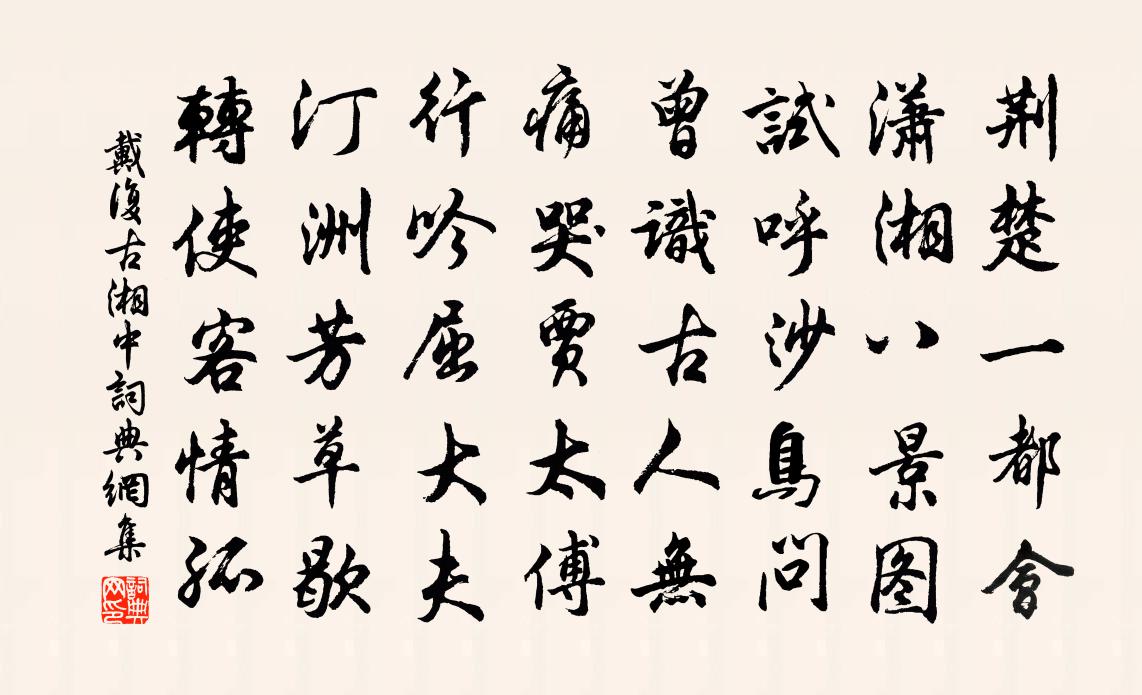 荆楚一都會
瀟湘八景图
試呼沙鳥問
曾識古人無
痛哭賈太傅
行吟屈大夫
汀洲芳草歇
轉使客情孤
戴復古湘中詞典網集
詞典网印